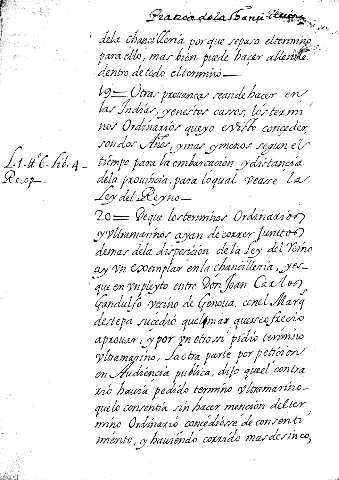 dela chancilleria porque sepaso eltermino
para ello, mas bien puede hacer allende
dentro de todo eltermino
19 Otras provanças seande hacer en
las Indias, y enestos cassos, los termi
nos Ordinarios queyo e visto conceder,
sondos Años, y mas, y menos segun el
tiempo para la embarcacion y distancia
dela provincia, para loqual vease la
Ley del Reyno
L. 1. tt.º 6. lib. 4
Recop.
20 Deque losterminos Ordinarios
y Vltramarinos ayan de correr Junttos
demas dela disposicion de la Ley del Reino
ay vn exemplar enla chancilleria, y es
que en vn pleyto entre Don Juan Carlos
Gandulfo vecino de Genova, con el Marq
destepa sucedió que
aprovar, y por vn otrosi pidio termino
Vltramarino, la otra parte por peticion
en Audiencia publica, dijo quel contra
rio havia pedido termino Vltramarino
quelo consentia sin hacer mencion del ter
mino Ordinario concediosse de consenti
miento, y haviendo corrido mas desinco,